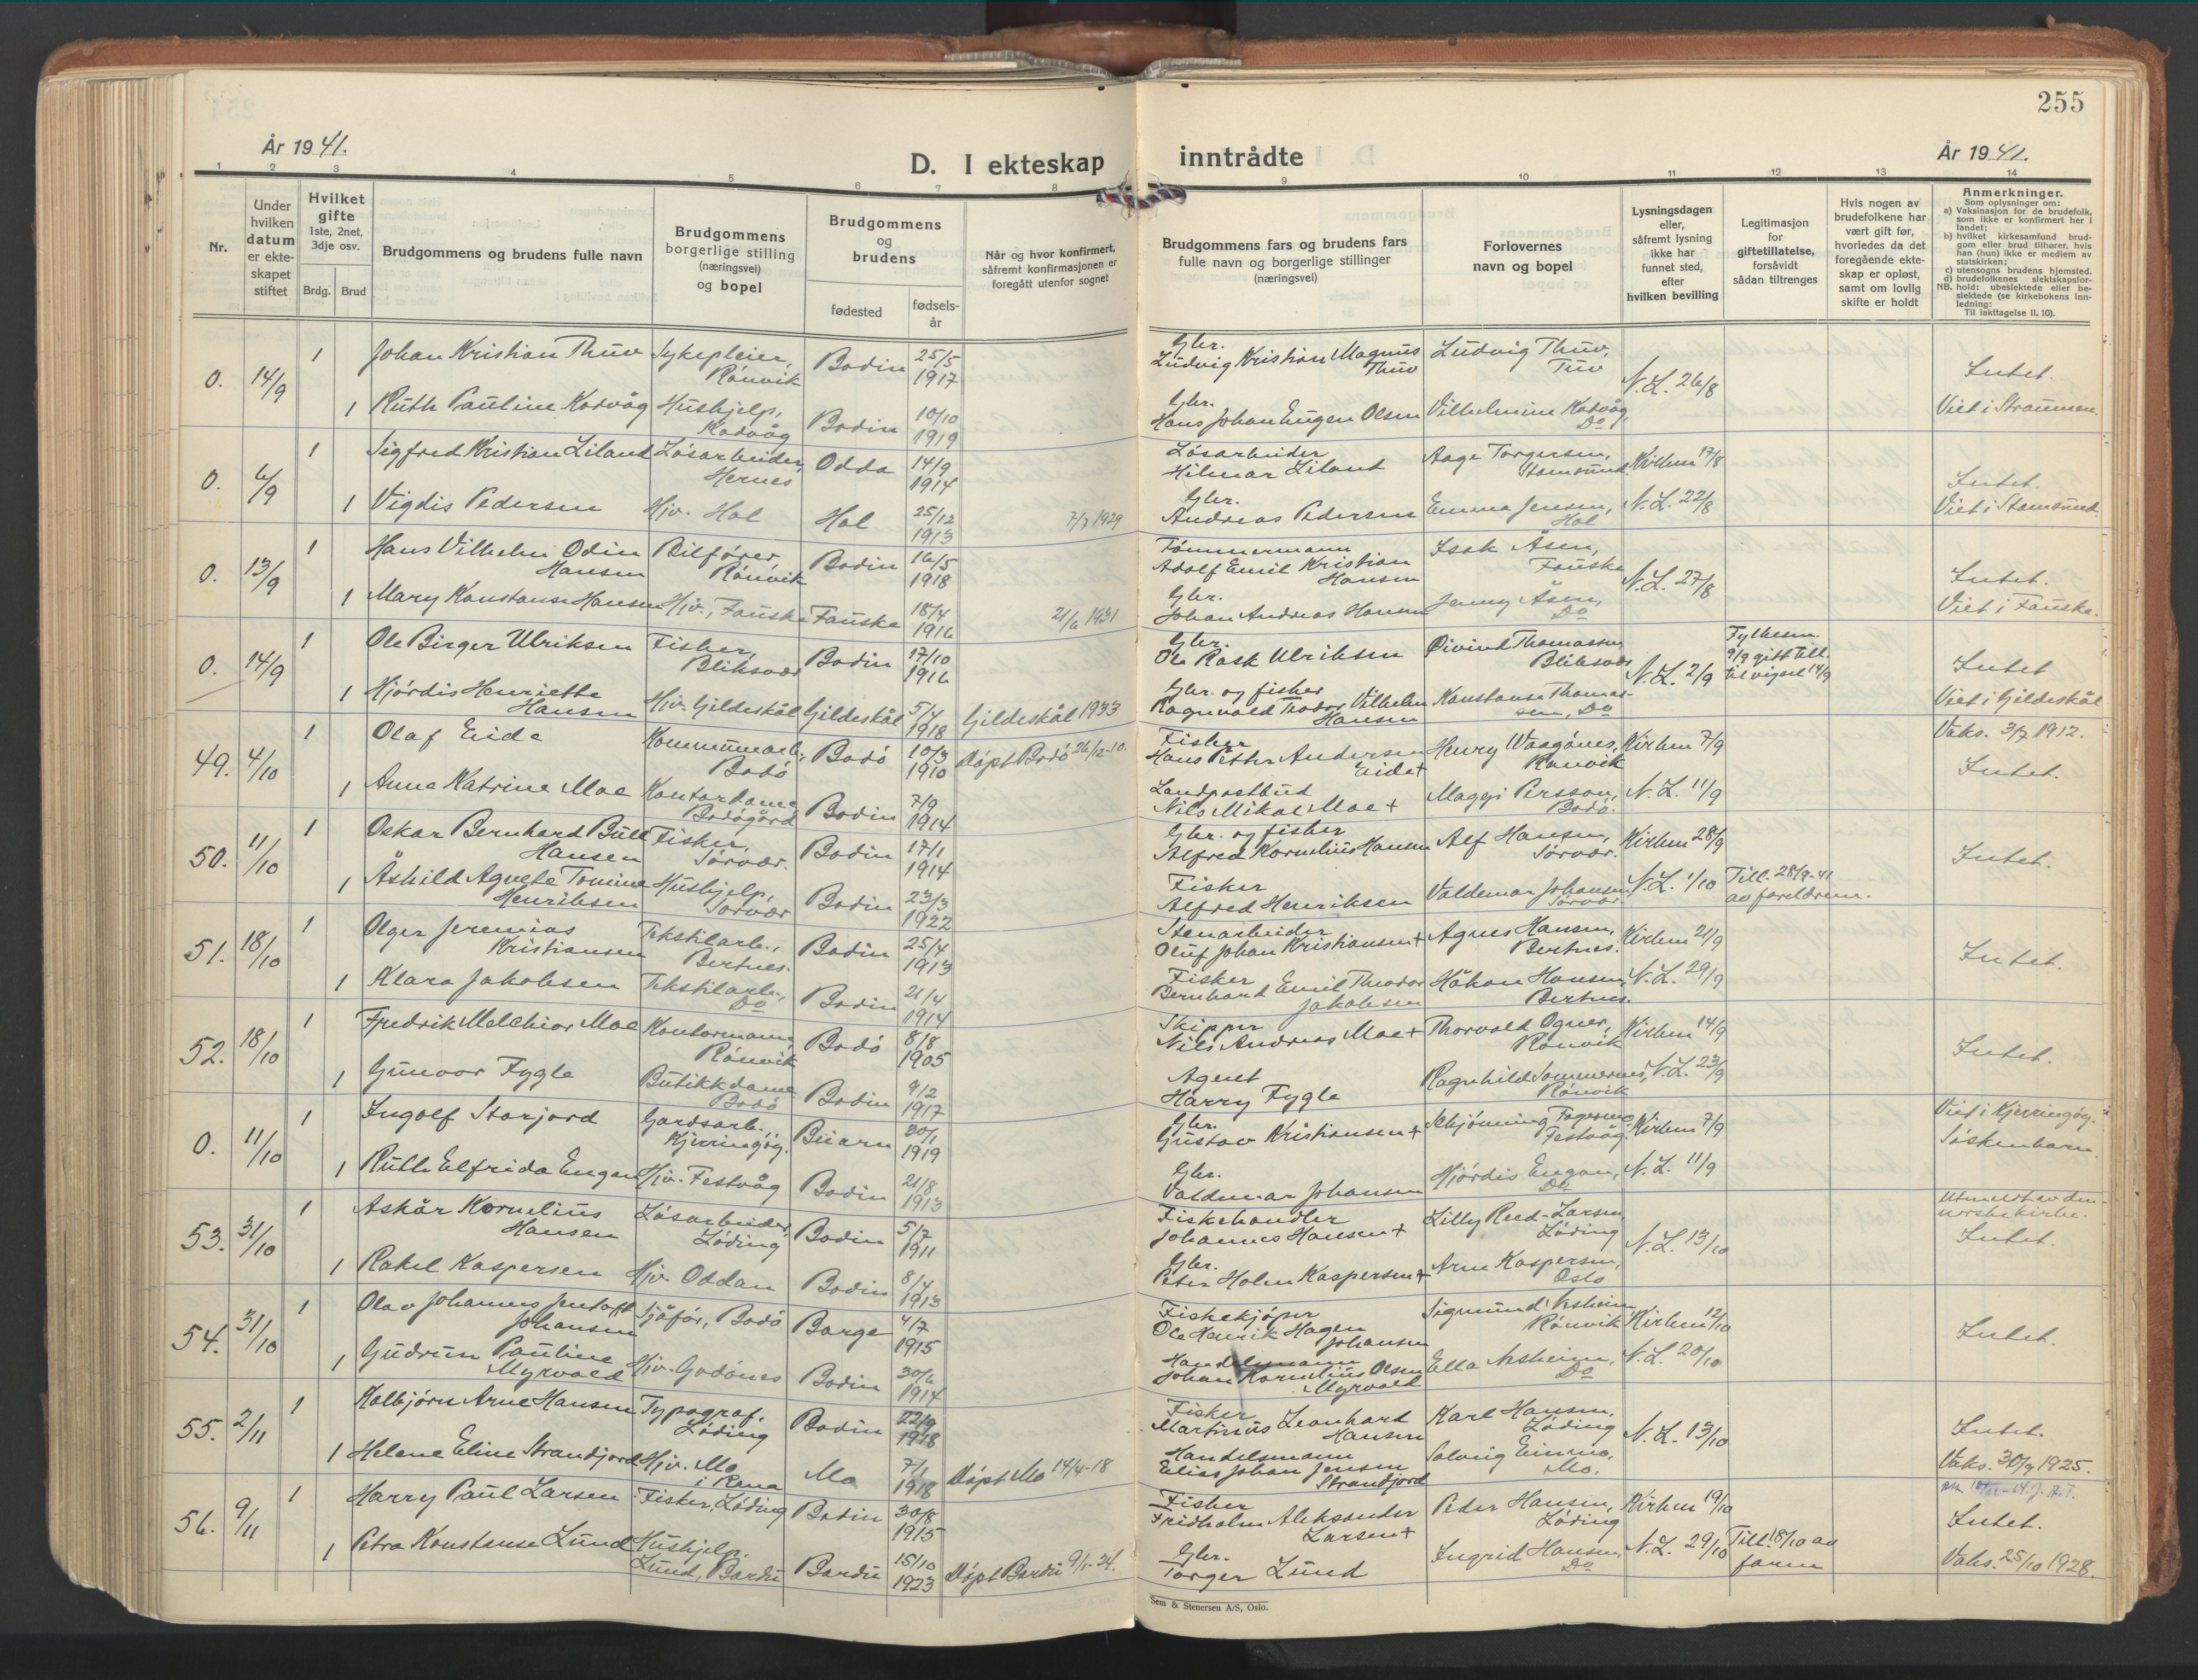 255
År 1941.
D. I ekteskap inntrådte
År 1941.
1 2 3 4 5 6 7 8 9 10 11 12 13 14
Nr.
Under hvilken datum er ekteskapet stiftet
Hvilket gifte 1ste, 2net, 3dje osv.
Brdg. Brud
Brudgommens og brudens fulle navn
Brudgommens borgerlige stilling (næringsvei) og bopel
Brudgommens og brudens
fødested
fødsels-år
Når og hvor konfirmert, såfremt konfirmasjonen er foregått utenfor sognet
Brudgommens fars og brudens fars fulle navn og borgerlige stillinger (næringsvei)
Forlovernes navn og bopel
Lysningsdagen eller, såfremt lysning ikke har funnet sted, efter hvilken bevilling
Legitimasjon for giftetillatelse, forsåvidt sådan tiltrenges
Hvis nogen av brudefolkene har vært gift før, hvorledes da det foregående ekteskap er opløst, samt om lovlig skifte er holdt
Anmerkninger.
Som oplysninger om:
a) Vaksinasjon for de brudefolk, som ikke er konfirmert her i landet;
b) hvilket kirkesamfund brudgom eller brud tilhører, hvis han (hun) ikke er medlem av statskirken;
c) utensogns brudens hjemsted.
d) brudefolkenes slektskapsforhold: ubeslektede eller beslektede (se kirkebokens innledning:
NB.
Til iakttagelse II. 10).
0. 14/9 1 Johan Kristian Thuv Sykepleier, Rønvik Bodin 25/5 1917 Gbr. Ludvig Kristian Magnus Thuv Ludvig Thuv, Tuv N.L. 26/8 Intet.
1 Ruth Pauline Kodvåg Hushjelp, Kodvåg Bodin 10/10 1919 Gbr. Hans Johan Eugen Olsen Vilhelmine Kodvåg, Do Viet i Straumen.
0. 6/9 1 Sigfred Kristian Liland Løsarbeider, Hernes Odda 14/9 1914 Løsarbeider Hilmar Liland Aage Torgersen, Stamsund. Kirken 17/8 Intet.
1 Vigdis Pedersen Hjv. Hol Hol 25/12 1913 7/7 1929 Gbr. Andreas Pedersen Emma Jensen, Hol N.L. 22/8 Viet i Stamsund.
0. 13/9 1 Hans Vilhelm Odin Hansen Bilfører, Rønvik Bodin 16/5 1918 Tømmermann Adolf Emil Kristian Hansen Isak Åsen, Fauske N.L. 27/8 Intet.
1 Mary Konstanse Hansen Hjv., Fauske Fauske 18/4 1916 21/6 1931 Gbr. Johan Andreas Hansen Jenny Åsen, Do Viet i Fauske.
0. 14/9 1 Ole Birger Ulriksen Fisker, Bliksvær Bodin 17/10 1916 Gbr. Ole Rask Ulriksen Øivind Thomassen, Bliksvær N.L. 2/9 Fylkesm. 9/9 gitt till. til vigsel 14/9 Intet
1 Hjørdis Henriette Hansen Hjv. Gildeskål Gildeskål 5/4 1918 Gildeskål 1933 Gbr. og fisker Ragnvald Teodor Vilhelm Hansen Konstanse Thomassen, Do Viet i Gildeskål
49. 4/10 1 Olaf Eide Kommunearb., Bodø Bodø 10/3 1910 Døpt Bodø 26/12-10. Fisker Hans Petter Andersen Eide+ Henry Waagønes, Rønvik Kirken 7/9 Vaks. 3/7 1912. Intet.
1 Anna Katrine Moe Kontordame Bodøgård Bodin 7/9 1914 Landpostbud Nils Mikal Moe+ Maggi Persson, Bodø. N.L. 11/9
50. 11/10 1 Oskar Bernhard Bull Hansen Fisker, Sørvær. Bodin 17/1 1914 Gbr. og fisker Alfred Kornelius Hansen Alf Hansen, Sørvær. Kirken 28/9 Intet.
1 Åshild Agnete Tomine Henriksen Hushjelp, Sørvær Bodin 23/3 1922 Fisker Alfred Henriksen Valdemar Johansen, Sørvær N.L. 1/10 Till. 28/9-41 av foreldrene.
51. 18/10 1 Olger Jeremias Kristiansen Tekstilarb., Bertnes. Bodin 25/4 1913 Stenarbeider Oluf Johan Kristiansen+ Agnes Hansen, Bertnes. Kirken 21/9 Intet.
1 Klara Jakobsen Tekstilarb., Do Bodin 21/4 1914 Fisker Bernhard Emil Theodor Jakobsen Håkon Hansen, Bertnes. N.L. 29/9
52. 18/10 1 Fredrik Melchior Moe Kontormann, Rønvik Bodø 8/8 1905 Skipper Nils Andreas Moe+ Thorvald Ogner, Rønvik Kirken 14/9 Intet.
1 Gunvor Fygle Butikkdame Bodø Bodin 9/2 1917 Agent Harry Fygle Ragnhild Sommernes, Rønvik N.L. 23/9
0. 11/10 1 Ingolf Storjord Gardsarb., Kjerringøy. Beiarn 30/1 1919 Gbr. Gustav Kristiansen+ Schjønning Fagernes Festvåg. Kirken 7/9 Viet i Kjerringøy.
1 Ruth Elfrida Engen Hjv. Festvåg Bodin 21/8 1913 Gbr. Valdemar Johansen Hjørdis Engan, Do. N.L. 11/9 Søskenbarn.
53. 31/10 1 Askår Kornelius Hansen Løsarbeider, Løding Bodin 5/7 1911 Fiskehandler Johannes Hansen+ Lilly Reed-Larsen Løding N.L. 13/10 Utmeldt av den norske kirke. Intet.
1 Rakel Kaspersen Hjv. Oddan Bodin 8/4 1913 Gbr. Peter Holm Kaspersen+ Arne Kaspersen, Oslo
54. 31/10 1 Olav Johannes Jentoft Johansen Sjåfør, Bodø Borge 4/7 1915 Fiskekjøper Ole Henrik Hagen Johansen Sigmund Arsheim, Rønvik Kirken 12/10 Intet.
1 Gudrun Pauline Myrvold Hjv. Godønes Bodin 30/6 1914 Handelsmann Johan Kornelius Olsen Myrvold Ella Arsheim, Do N.L. 20/10
55. 2/11 1 Kolbjørn Arne Hansen Typograf, Løding Bodin 22/9 1918 Fisker Martinius Leonhard Hansen Karl Hansen, Løding N.L. 13/10 Intet.
1 Helene Eline Strandjord Hjv. Mo i Rana Mo 7/1 1918 Døpt Mo 14/4-18 Handelsmann Elias Johan Jensen Strandjord Solveig Einmo, Mo. Vaks. 30/9 1925.
56. 9/11 1 Harry Paul Larsen Fisker, Løding Bodin 30/8 1915 Fisker Fridholm Aleksander Larsen+ Peder Hansen, Løding Kirken 19/10 Intet.
1 Petra Konstanse Lund Hushjelp, Lund, Bardu Bardu 15/10 1923 Døpt Bardu 9/1-24. Gbr. Torger Lund Ingrid Hansen, Do N.L. 29/10 Till. 18/10 av faren Vaks. 25/10 1928.
Sem & Stenersen A/S, Oslo.